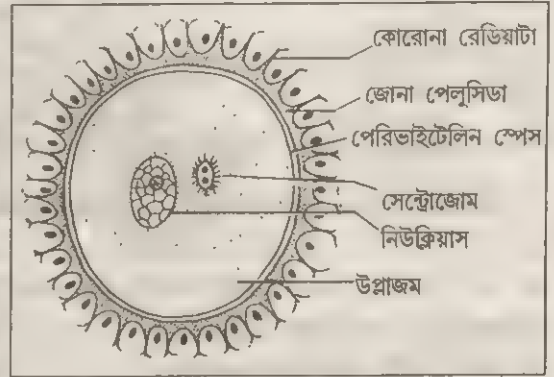 কোরোনা রেডিয়াটা
জোনা পেলুসিডা
পেরিভাইটেলিন স্পেস
সেন্ট্রোজোম
নিউক্লিয়াস
উপ্লাজম